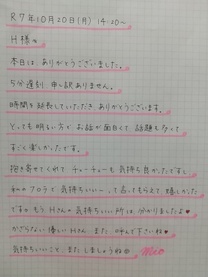 R7年10月20日(月) 14:20~
H様へ
本日は ありがとうございました。
5分遅刻 申し訳ありません。
時間を延長していただき ありがとうございます。
とっても明るい方で お話が面白くて 話題もなって
すごく楽しかったです。
抱き寄せてくれて チューチューも 気持ち良かったですし
私の フロラで 気持ちいいーって言ってもらえて 嬉しかった
です♡ もう Hさんの 気持ちいい所は 分かりましたよ♥
かざらない 優しい Hさん、また 呼んで下さいね♥
気持ちいいこと また しましょうね☺ Mio